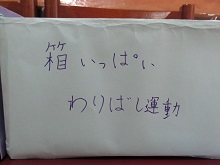 箱いっぱい
わりばし運動